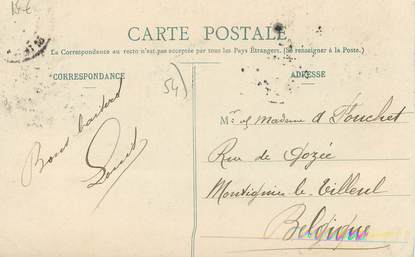 CARTE POSTALE
La Correspondance au recto n'est pas acceptée par tous les Pays Étrangers. (Se renseigner à la Poste.)
CORRESPONDANCE
Bons baisers
Louis
54)
ADRESSE
Mr et Madame A Fouchet
Rue de Gozée
Montignies le Tilleul
Belgique